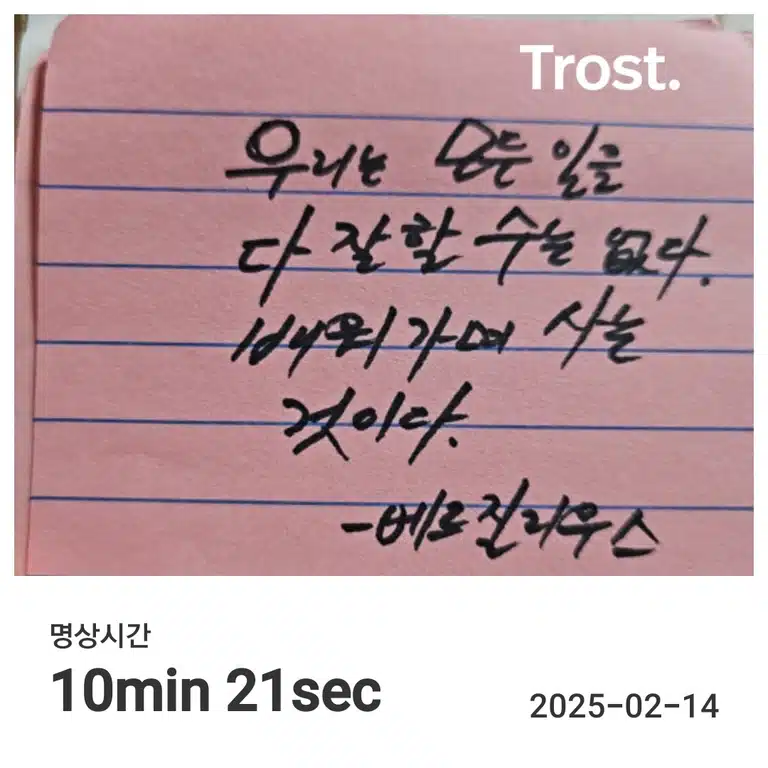 Trost.
우리는 모든 일을
다 잘 할 수는 없다.
배워가며 사는
것이다.
-베르질리우스
명상시간
10min 21sec
2025-02-14